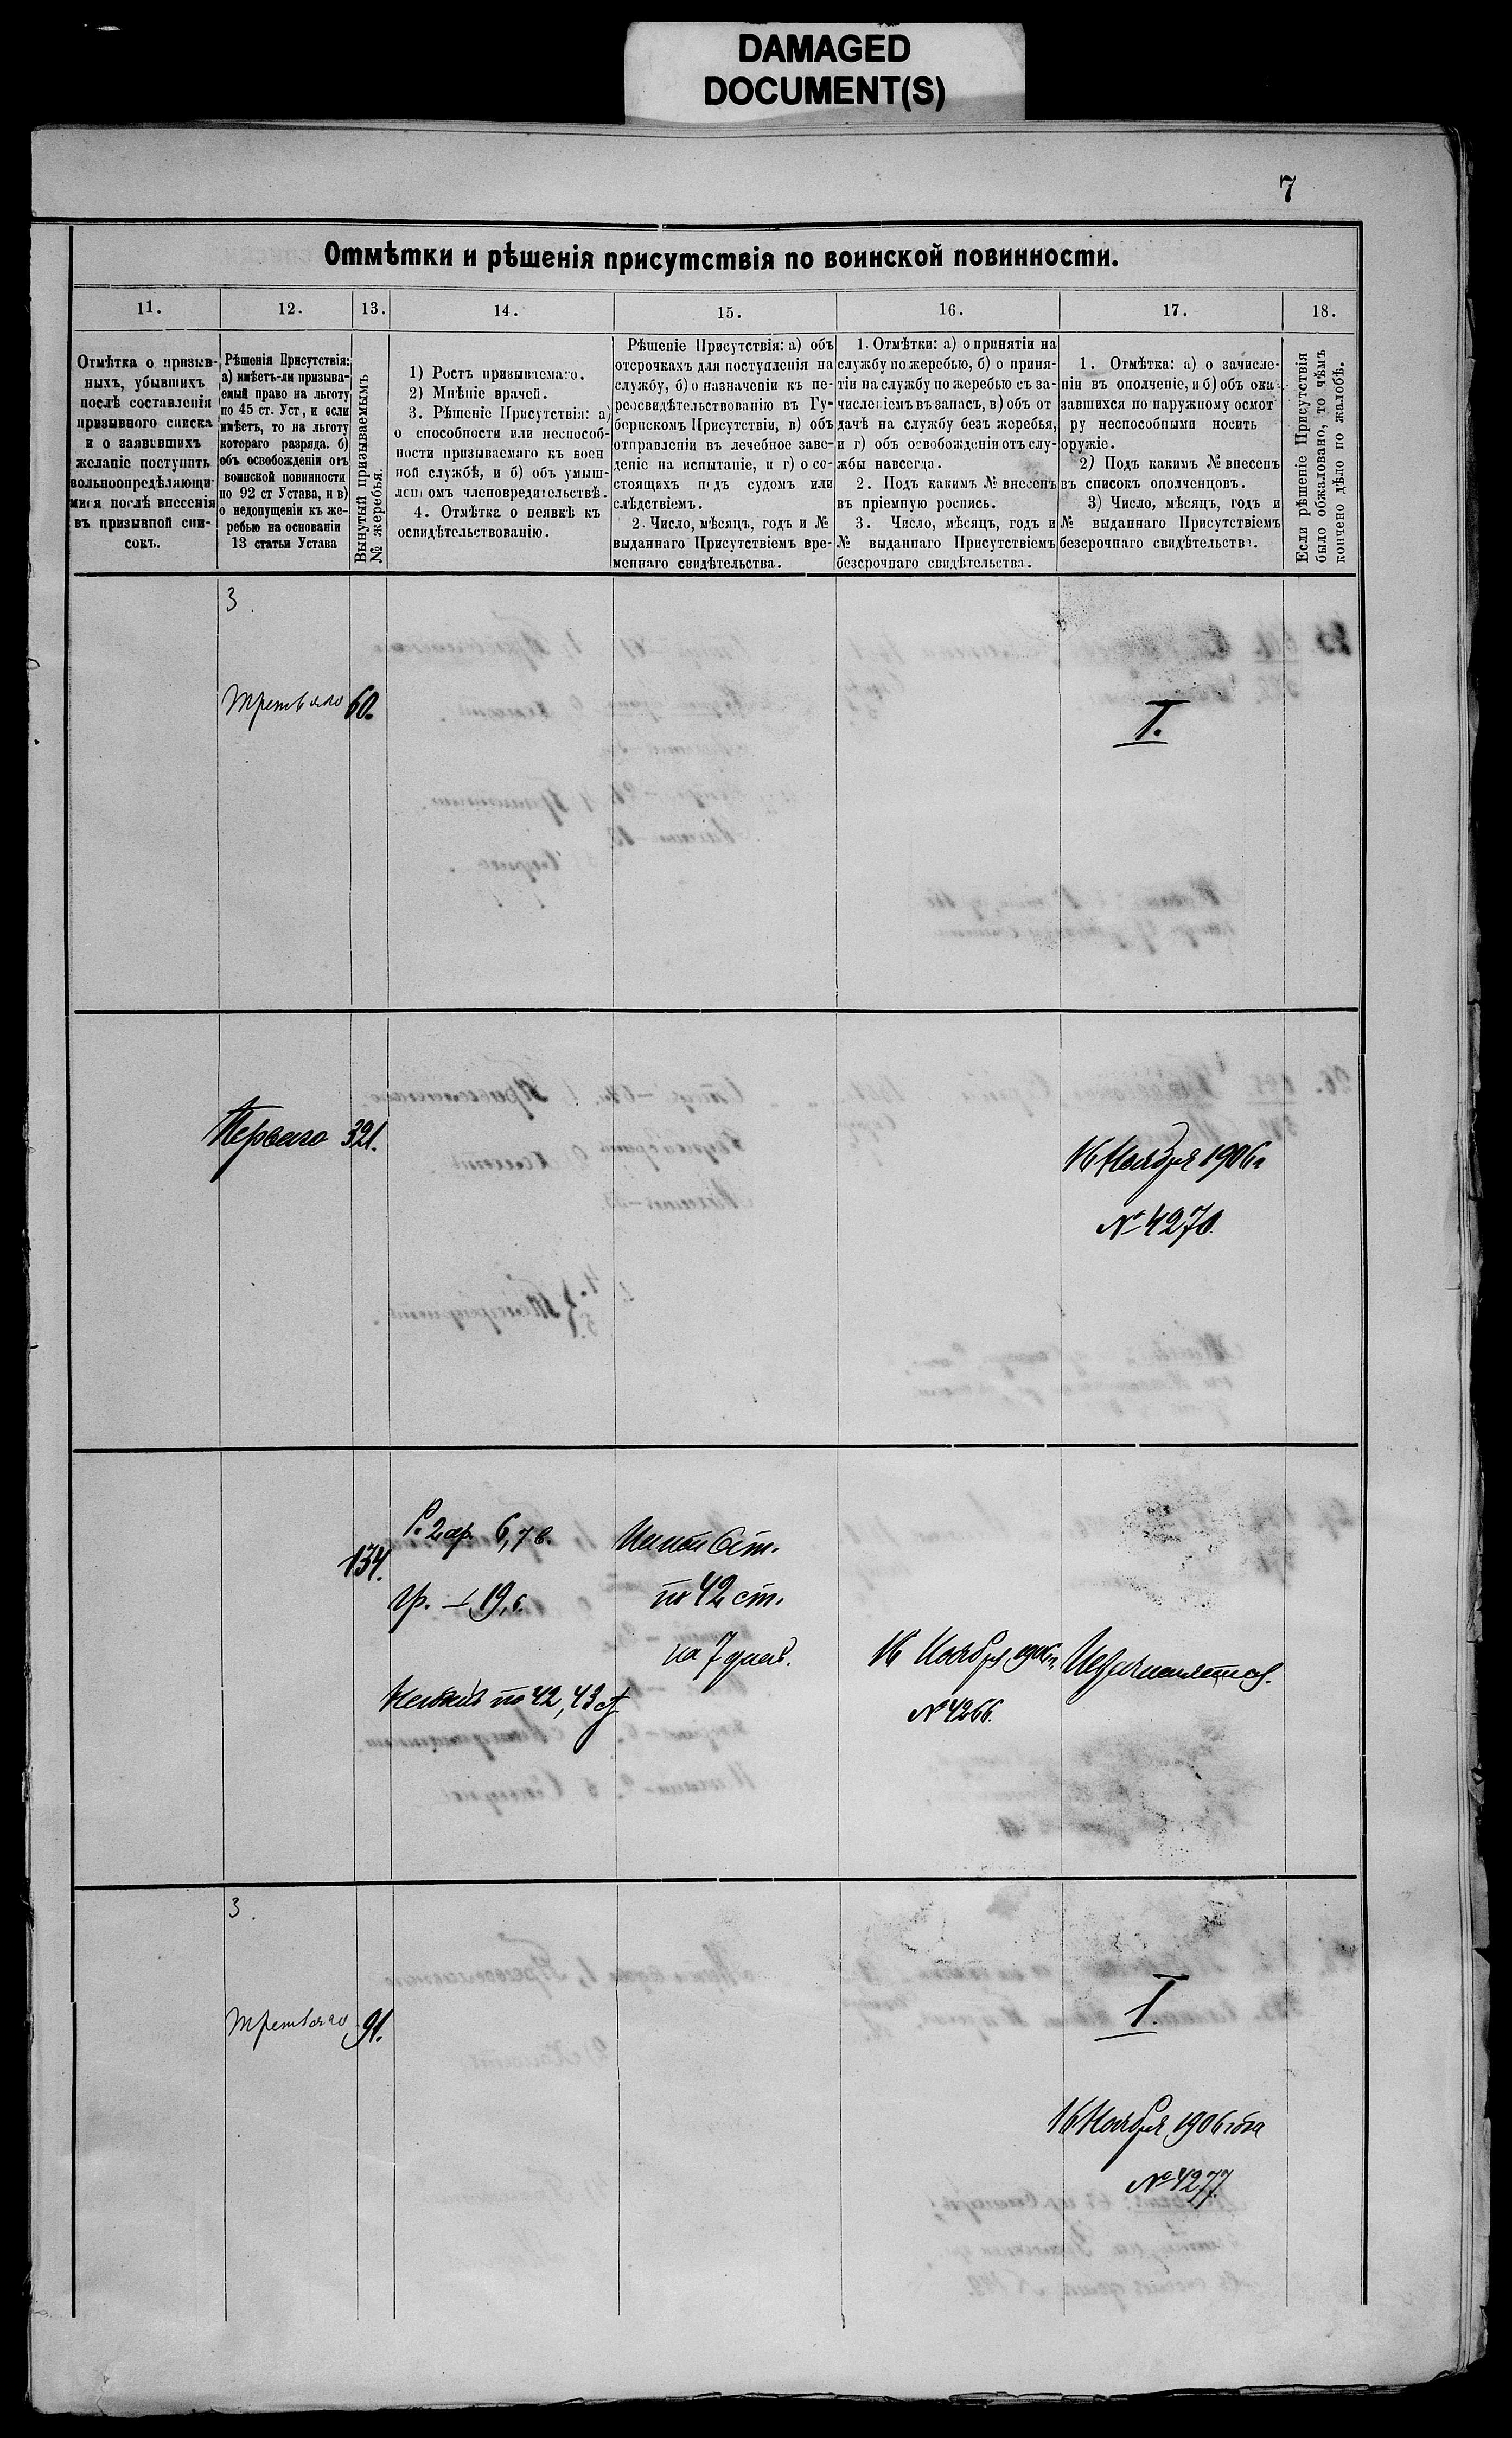 DAMAGED
DOCUMENT(S)
7
Отмѣтки и рѣшенія присутствія по воинской повинности.
11. 12. 13. 14. 15. 16. 17. 18.
Отмѣтка о призыв-
ныхъ, убывшихъ
послѣ составленія
призывного списка
и о заявившихъ
желаніе поступить
вольноопредѣляющи-
мися послѣ внесенія
въ призывной спи-
сокъ.
Рѣшенія Присутствія:
а) имѣетъ-ли призыва-
емый право на льготу
по 45 ст. Уст, и если
имѣетъ, то на льготу
котораго разряда. б)
объ освобожденіи отъ
воинской повинности
по 92 ст Устава, и в)
о недопущеніи къ же-
ребью на основаніи
13 статьи Устава
Вынутый призываемымъ
№ жеребья.
1) Ростъ призываемаго.
2) Мнѣніе врачей.
3. Рѣшеніе Присутствія: а)
о способности или неспособ-
ности призываемаго къ воен
ной службѣ, и б) объ умыш-
ленномъ членовредительствѣ.
4. Отмѣтка о неявкѣ къ
освидѣтельствованію.
Рѣшеніе Присутствія: а) объ
отсрочкахъ для поступленія на
службу, б) о назначеніи къ пе-
реосвидѣтельствованію въ Гу-
бернскомъ Присутствіи, в) объ
отправленіи въ лечебное заве-
деніе на испытаніе, и г) о со-
стоящахъ подъ судомъ или
слѣдствіемъ.
2. Число, мѣсяцъ, годъ и №
выданнаго Присутствіемъ вре-
меннаго свидѣтельства.
1. Отмѣтки: а) о принятіи на
службу по жеребью, б) о приня-
тіи на службу по жеребью съ за-
численіемъ въ запасъ, в) объ от
дачѣ на службу безъ жеребья,
и г) объ освобожденіи отъ слу-
жбы навсегда.
2. Подъ какимъ № внесенъ
въ пріемную роспись.
3. Число, мѣсяцъ, годъ и
№ выданнаго Присутствіемъ
безсрочнаго свидѣтельства.
1. Отмѣтка: а) о зачисле-
ніи въ ополченіе, и б) объ ока-
завшихся по наружному осмот
ру неспособными носить
оружіе.
2) Подъ какимъ № внесенъ
въ списокъ ополченцовъ.
3) Число, мѣсяцъ, годъ и
№ выданнаго Присутствіемъ
безсрочнаго свидѣтельства.
Если рѣшеніе Присутствія
было обжаловано, то чѣмъ
кончено дѣло по жалобѣ.
3.
Третьяго 60.
I.
Перваго 321.
16 Ноября 1906 г
№ 4270.
134.
Р. 2 ар. 6,7 в.
гр. – 19,
по 42, 43 ст.
по 42 ст.
на 7 дней.
16 Ноября 1906 г.
№ 4266.
3.
Третьяго 91.
I.
16 Ноября 1906 года
№ 4277.